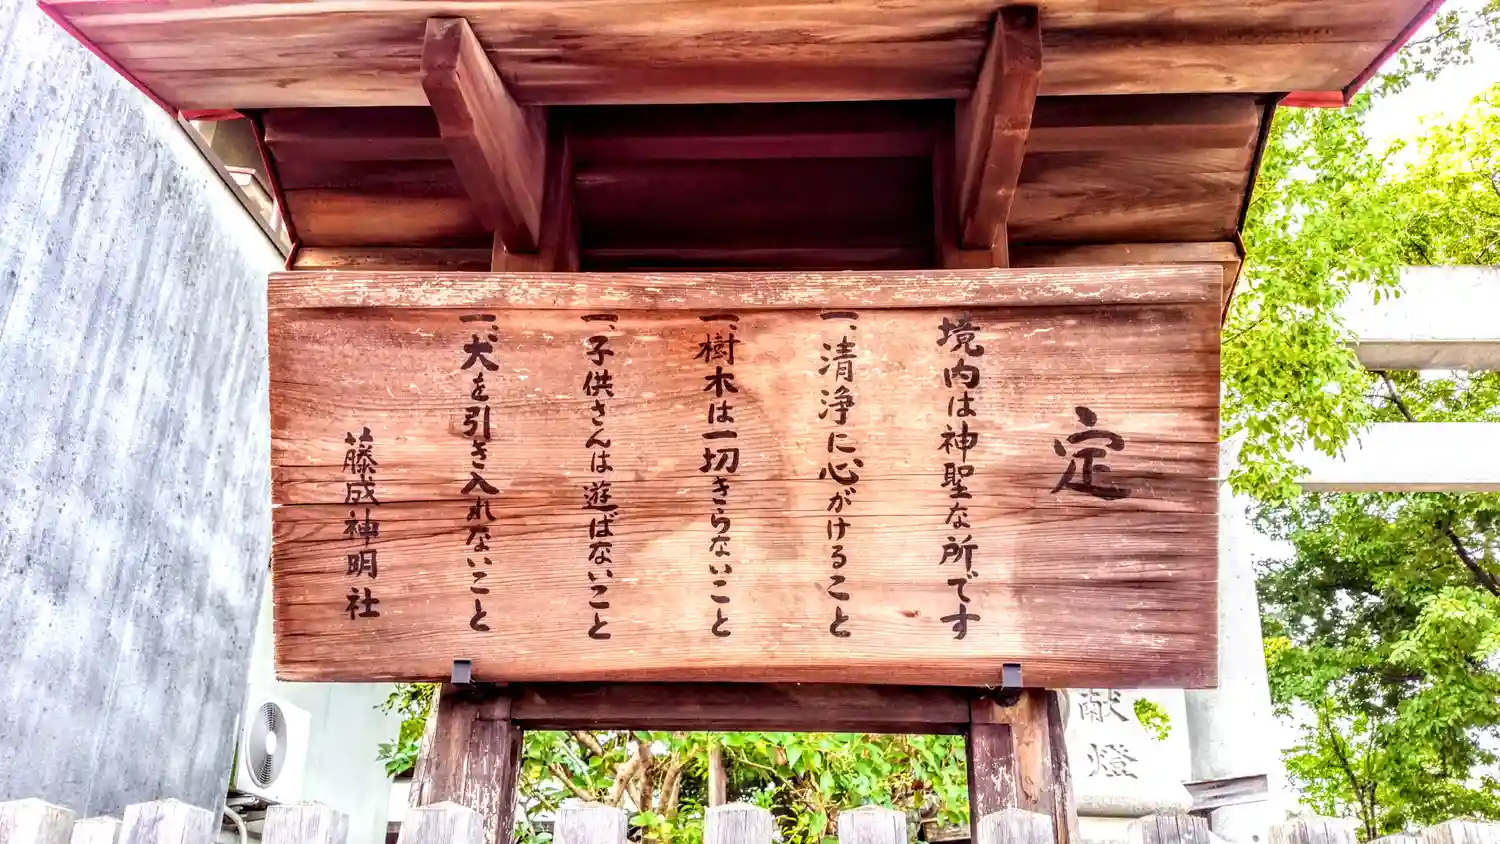 定
境内は神聖な所です
一、清浄に心がけること
一、樹木は一切きらないこと
一、子供さんは遊ばないこと
一、犬を引き入れないこと
藤成神明社
献燈